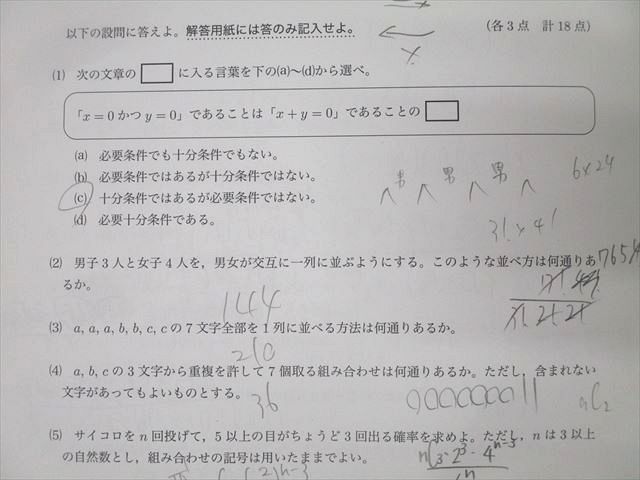 以下の設問に答えよ。解答用紙には答のみ記入せよ。 (各3点 計18点)
(1) 次の文章の□に入る言葉を下の(a)~(d)から選べ。
「x=0かつy=0」であることは「x+y=0」であることの□
(a) 必要条件でも十分条件でもない。
(b) 必要条件ではあるが十分条件ではない。
(c) 十分条件ではあるが必要条件ではない。
(d) 必要十分条件である。
男 男 男
6×24
3!×4!
(2) 男子3人と女子4人を,男女が交互に一列に並ぶようにする。このような並べ方は何通りあ
るか。
144
765
(3) a, a, a, b, b, c, cの7文字全部を1列に並べる方法は何通りあるか。
210
(4) a, b, cの3文字から重複を許して7個取る組み合わせは何通りあるか。ただし,含まれない
文字があってもよいものとする。
36
0000000||
(5) サイコロをn回投げて,5以上の目がちょうど3回出る確率を求めよ。ただし,nは3以上
の自然数とし,組み合わせの記号は用いたままでよい。